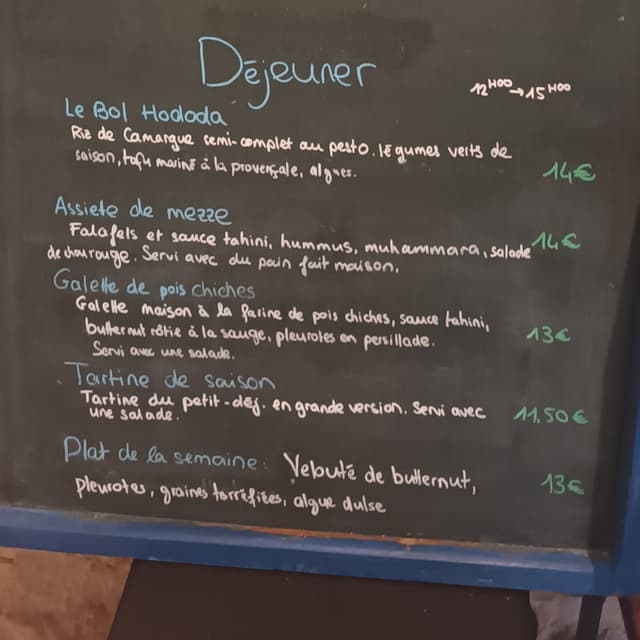 Déjeuner
12H00 → 15H00
Le Bol Hododa
Riz de Camargue semi-complet au pesto. légumes verts de
saison, tofu mariné à la provençale, algues.
14€
Assiete de mezze
Falafels et sauce tahini, hummus, muhammara, salade
14€
de chou rouge. Servi avec du pain fait maison.
Galette de pois chiches
Galette maison à la farine de pois chiches, sauce tahini,
butternut rôtie à la sauge, pleurotes en persillade.
13€
Servi avec une salade.
Tartine de saison
Tartine du petit-déj. en grande version. Servi avec
11,50€
une salade.
Plat de la semaine: Veouté de butternut,
13€
pleurotes, graines torréfiées, algue dulse